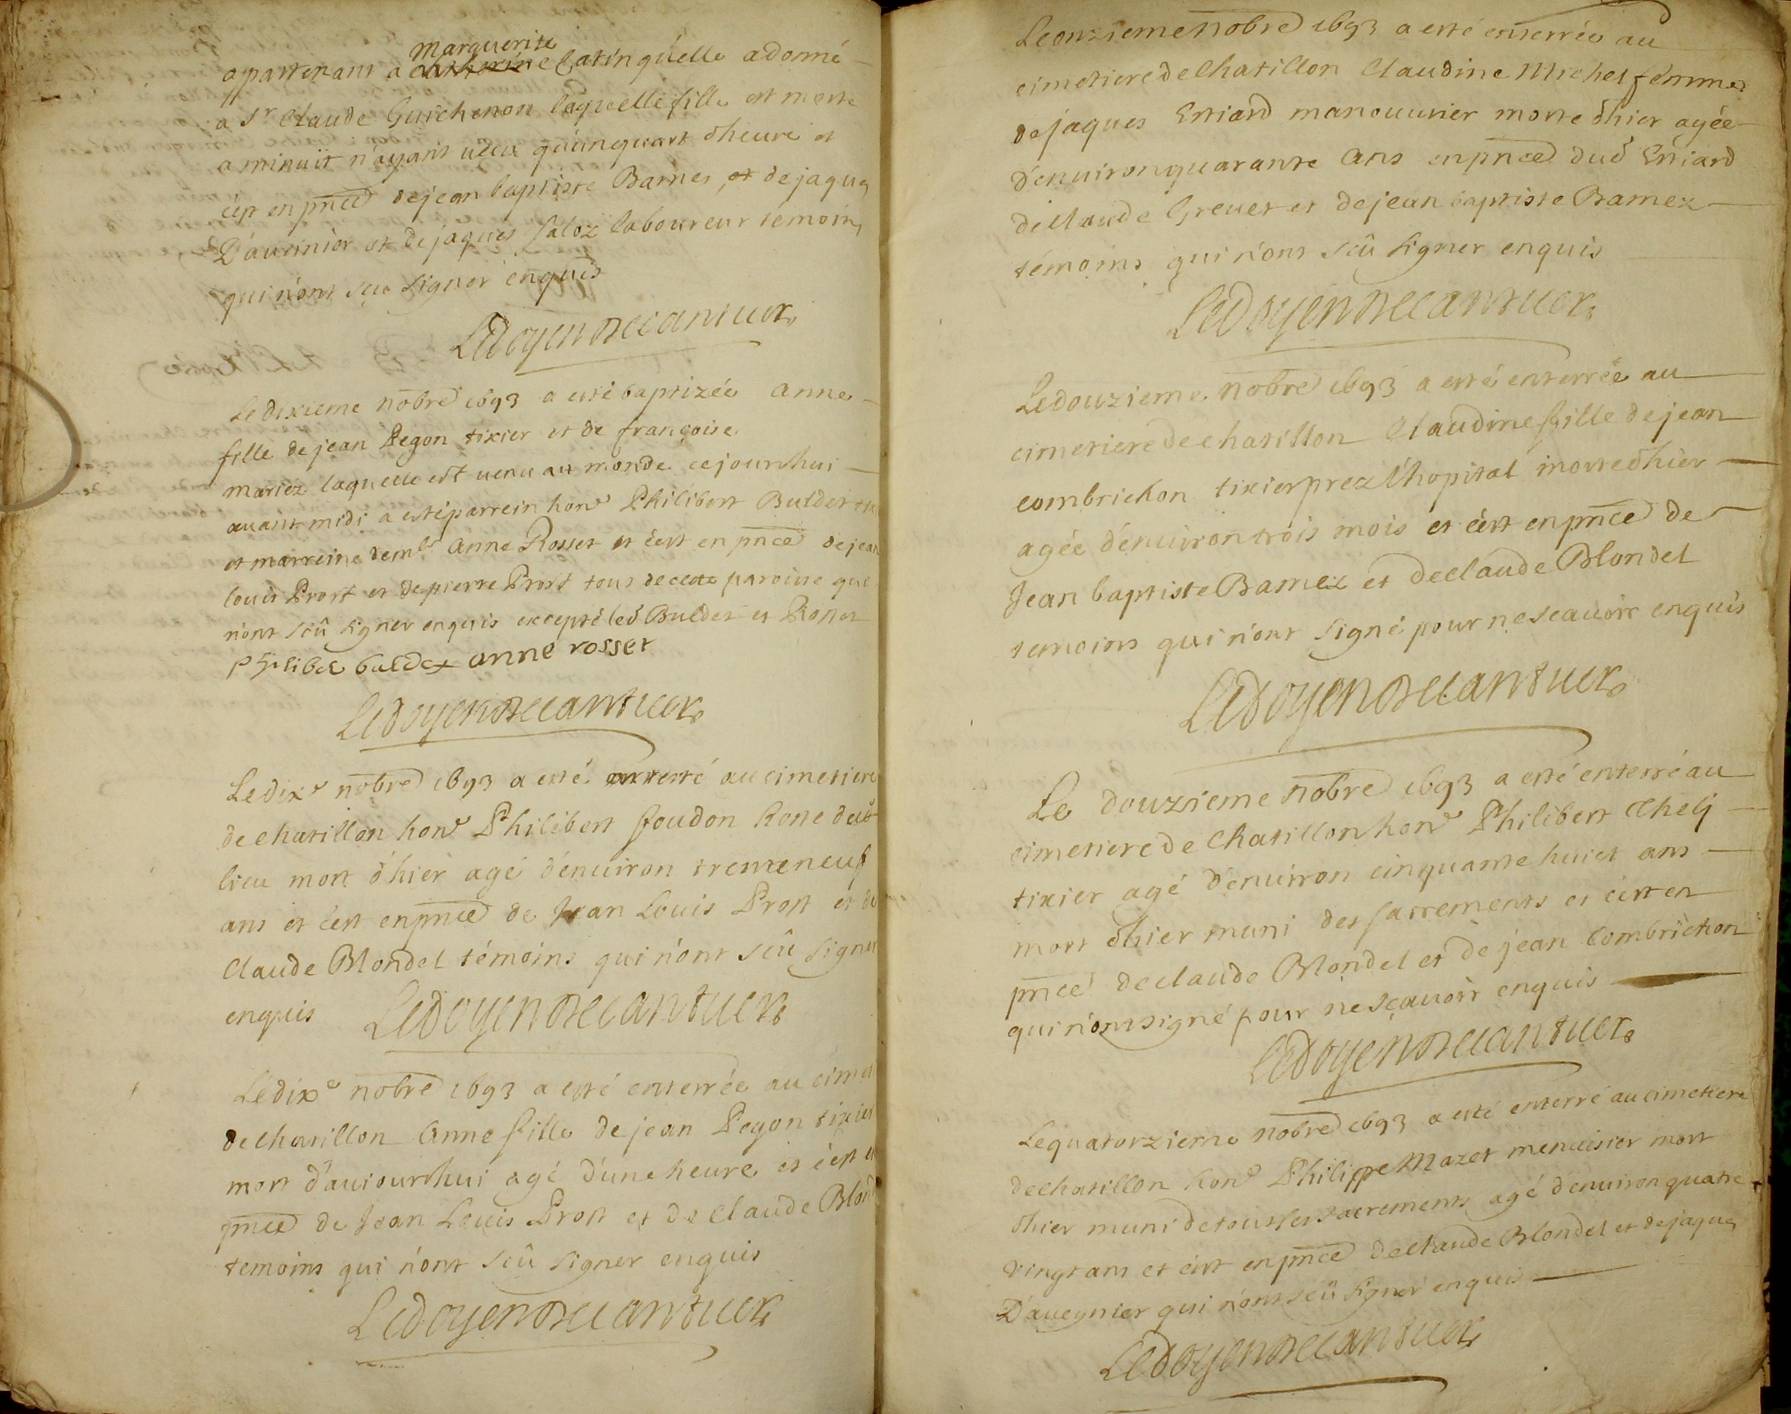 Marguerite
appartenant a catherine Catin qu'elle a donné
a Sr Claude Guichenon laquelle fille est morte
a minuit n'ayant uécu qu'un quart d'heure et
c'est en pnce de jean baptiste Barnes, et de jaques
D'auernier et de jaques laboureur temoins
qui n'ont sceu signer enquis
Ledoyen Decantuer
Le dixieme nobre 1693 a esté baptizée anne
fille de jean Pegon tixier et de françoise
mariez laquelle est uenu au monde ce jourdhui
auant midi a esté parrein honr Philibert Buldet
et marreine demlle Anne Rosset et c'est en pnce de jean
louis Prost et de pierre Prost tous de cette paroisse qui
n'ont sceû signer enquis excepté led Buldet et Rosset
philibe buldet anne rosset
Ledoyen Decantuer
Le dixe nobre 1693 a esté enterré au cimetiere
de chatillon honr Philibert foudon hoste dud
lieu mort d'hier agé d'enuiron trenteneuf
ans et c'est en pnce de Jean Louis Prost et de
Claude Blondel témoins qui n'ont sceû signer
enquis Ledoyen Decantuer
Le dixe nobre 1693 a esté enterrée au cimet
de chatillon Anne fille de jean Pegon tixier
mort d'auiourdhui agé d'une heure et c'est en
pnce de Jean Louis Prost et de Claude Blond
temoins qui n'ont sceû signer enquis
Ledoyen Decantuer
Le onzieme nobre 1693 a esté enterrée au
cimetiere de Chatillon Claudine Michel femme
de jaques Eniard manouurier morte d'hier agée
d'enuiron quarante ans en pnce dud Eniard
de Claude Greuet et de jean baptiste Bamez
témoins qui n'ont sceû signer enquis
Ledoyen Decantuer
Le douzieme nobre 1693 a esté enterrée au
cimetiere de chatillon Claudine fille de jean
combrichon tixier prez l'hopital morte d'hier
agée d'enuiron trois mois et c'est en pnce de
Jean baptiste Bamez et de claude Blondel
temoins qui n'ont signé pour ne scauoir enquis
Ledoyen Decantuer
Le douzieme nobre 1693 a esté enterré au
cimetiere de Chatillon honr Philibert Chelj
tixier agé d'enuiron cinquante huict ans
mort d'hier muni des sacrements et c'est en
pnce de claude Blondel et de jean Combrichon
qui n'ont signé pour ne scauoir enquis
Ledoyen Decantuer
Le quatorzieme nobre 1693 a esté enterré au cimetiere
de chatillon honr Philippe Mazet menuisier mort
d'hier muni de tous les sacrements agé d'enuiron quatre
vingt ans et c'est en pnce de claude Blondel et de jaques
D'auernier qui n'ont sceû signer enquis
Ledoyen Decantuer